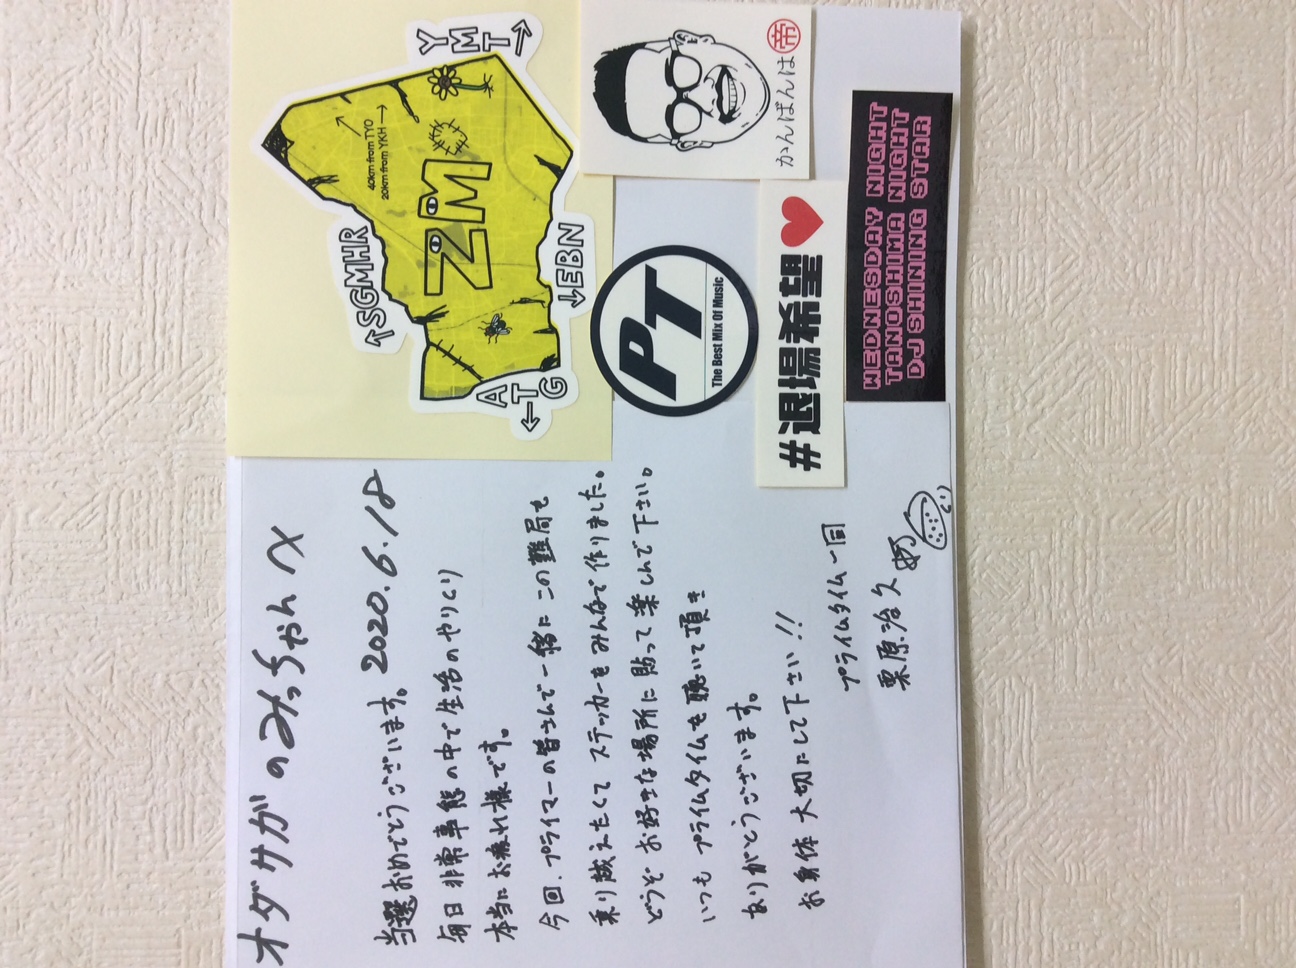 オダサガのみっちゃんへ
2020.6.18
当選おめでとうございます。
毎日非常事態の中で生活のやりくり
本当にお疲れ様です。
今回、プライマーの皆さんで一緒にこの難局も
乗り越えたくてステッカーをみんなで作りました。
どうぞお好きな場所に貼って楽しんで下さい。
いつもプライムタイムを聴いて頂き
ありがとうございます。
お身体大切にして下さい!!
プライムタイム一同
栗原治久
YMT→
40km from TYO
20km from YKH
ZM
←SGMHR
↓EBN
ATG
かんばんは
帝
PT
The Best Mix Of Music
#退場希望
WEDNESDAY NIGHT
TANOSHIMA NIGHT
DJ SHINING STAR